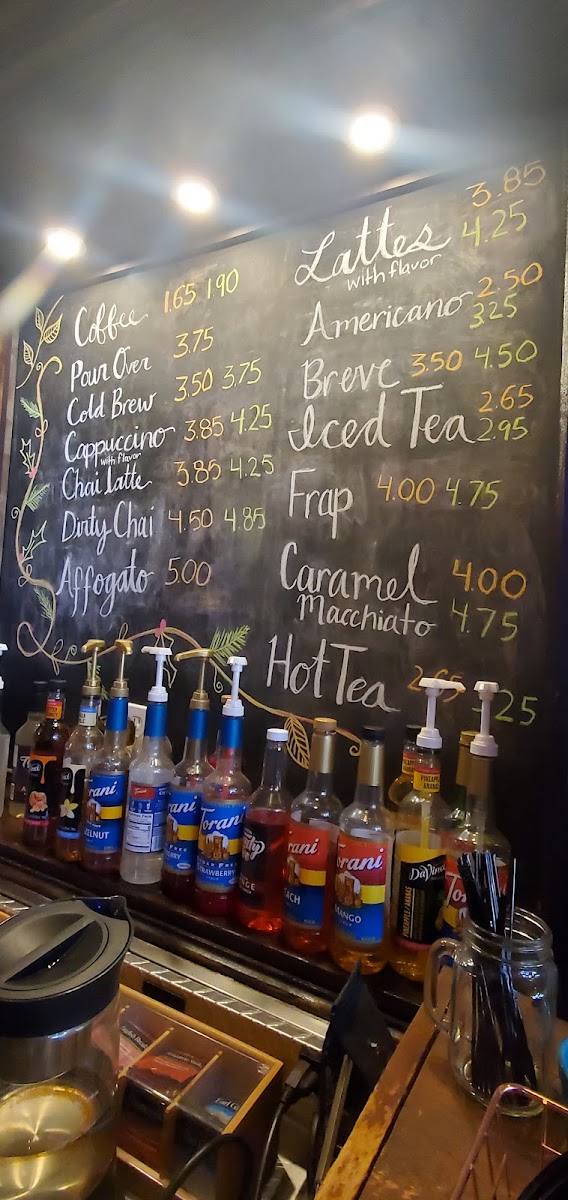 Coffee 1.65 1.90
Pour Over 3.75
Cold Brew 3.50 3.75
Cappuccino 3.85 4.25
with flavor
Chai Latte 3.85 4.25
Dirty Chai 4.50 4.85
Affogato 5.00
3.85
Lattes 4.25
with flavor
Americano 2.50
3.25
Breve 3.50 4.50
Iced Tea 2.65
2.95
Frap 4.00 4.75
Caramel 4.00
Macchiato 4.75
Hot Tea 2.65
25
Torani
STRAWBERRY
DaVinci
PINEAPPLE